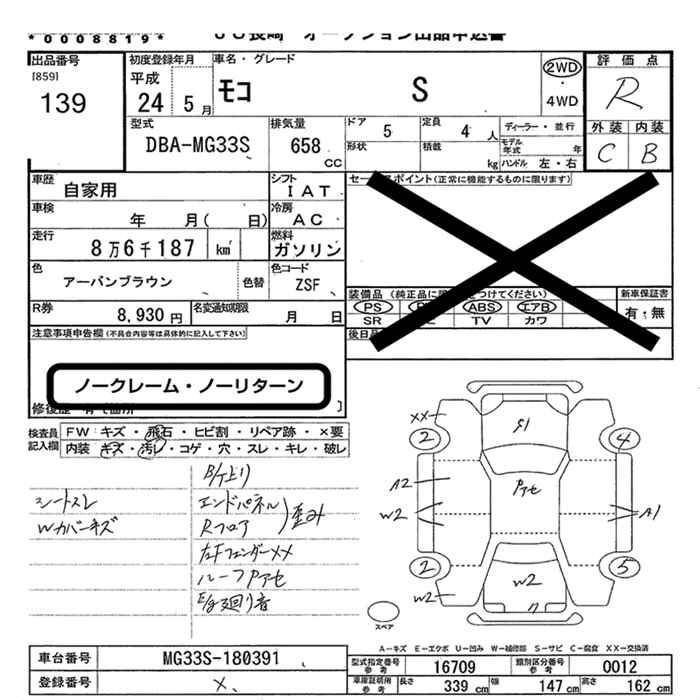 *0008819*
ＪＵ長崎 オークション出品申込書
出品番号
[859]
139
初度登録年月
平成
24 5月
車名・グレード
モコ S
2WD
・
4WD
評価点
R
外装 内装
C B
型式
DBA-MG33S
排気量
658
cc
ドア
5
定員
4 人
形状
積載
kg
ディーラー・並行
モデル
年式 年
ハンドル 左・右
車歴
自家用
シフト
IAT
車検
年 月( 日)
冷房
AC
走行
8万6千187 km
燃料
ガソリン
色
アーバンブラウン
色替
色コード
ZSF
R券
8,930 円
名変通知期限
月 日
注意事項申告欄 (不具合内容等は具体的に記入して下さい)
ノークレーム・ノーリターン
セールスポイント(正常に機能するものに限ります)
装備品
PS ABS エアB
SR TV カワ
新車保証書
有・無
後日
検査員
記入欄
FW キズ・飛石・ヒビ割・リペア跡・×要
内装 キズ・汚レ・コゲ・穴・スレ・キレ・破レ
シートスレ
Wカバーキズ
エンドパネル
Rフロア
歪み
左FフェンダーXX
ルーフPアセ
E/g廻り音
XX
2
4
Pアセ
A2
W2
A1
2
5
W2
W2
スペア
A－キズ E－エクボ U－凹み W－補修跡 S－サビ C－腐食 XX－交換済
車台番号
MG33S-180391
登録番号
×
型式指定番号
参考
16709
類別区分番号
参考
0012
車庫証明用
参考
長さ
339 cm
幅
147 cm
高さ
162 cm